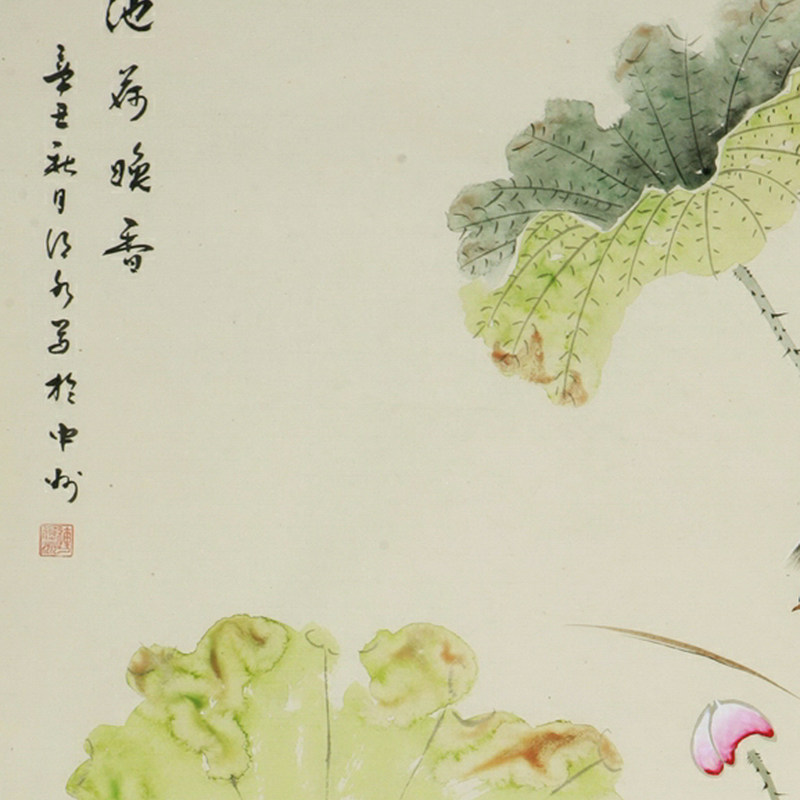 池荷晚香
辛丑秋月清水写於中州